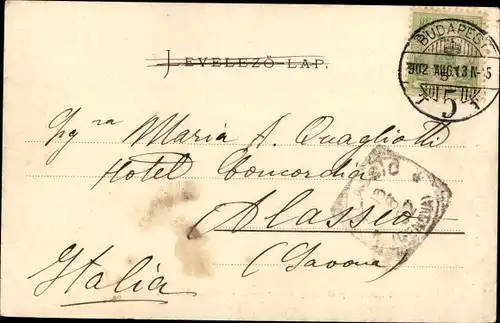 BUDAPEST
902 AUG. 13 N
5
LEVELEZŐ-LAP.
Sgra Maria A. Quagliotti
Hotel Concordia
Alassio
(Savona)
Italia